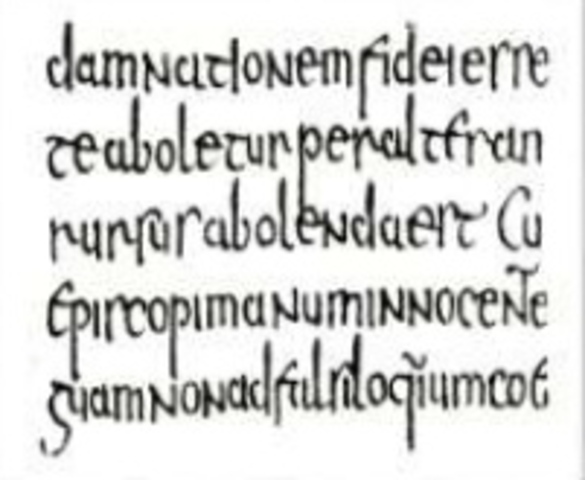 damnationemfideiesse
teaboletur per
rursus abolendaest Cu
Episcopimanuminnocente
guamnonadfalsiloqiumcoe